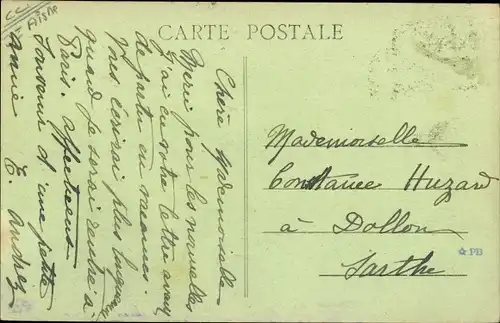 CARTE POSTALE
Aisne
Chère Mademoiselle
Merci pour les nouvelles
J'ai eu votre lettre avant
départ en vacances.
Vous écrirai plus longue
quand je serai rentré à
Paris. Affectueux
Souvenir d'une petite
Annie
Mademoiselle
Constance Huzard
à Dollon
Sarthe
PB